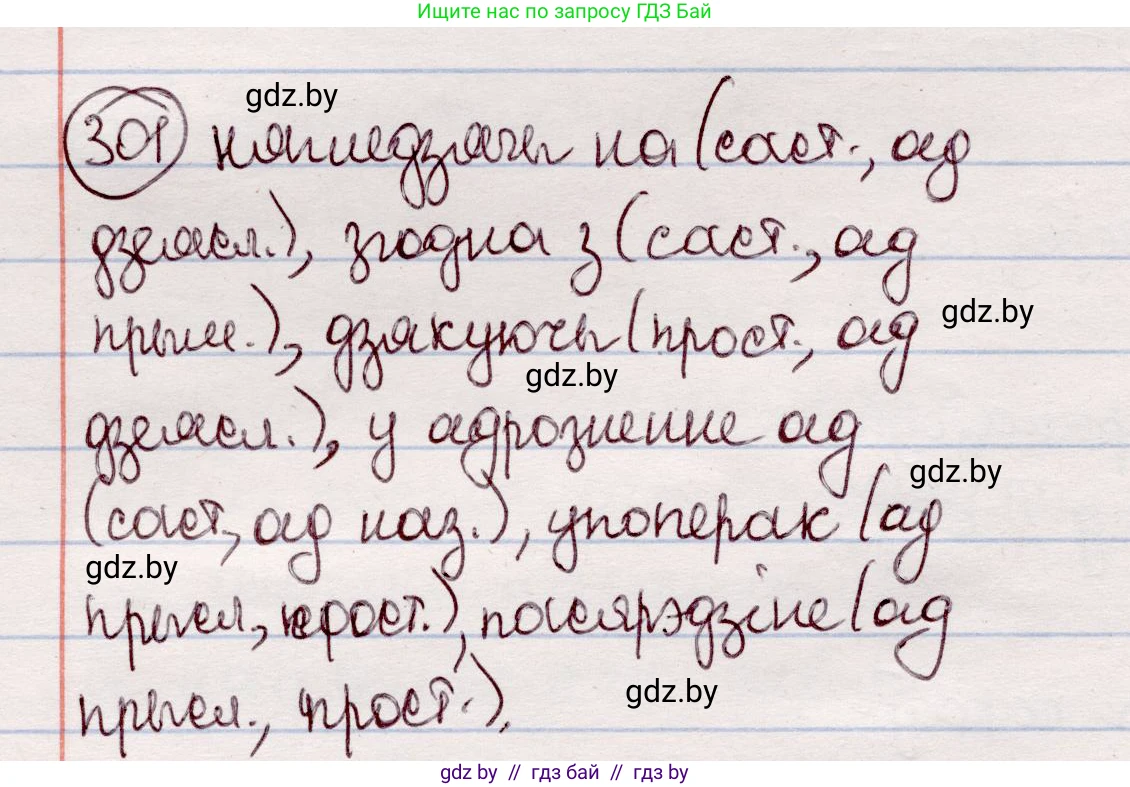 Ищите нас по запросу ГДЗ Бай
gdz.by
301 нягледзячы на (саст., ад
дзеясл.), згодна з (саст., ад
прым.), дзякуючы (прост., ад
gdz.by
gdz.by
дзеясл.), у адрозненне ад
gdz.by
(саст, ад наз.), упоперак (ад
gdz.by
прысл., прост.), пасярэдзіне (ад
прысл., прост.).
gdz.by
gdz by // гдз бай // гдз by